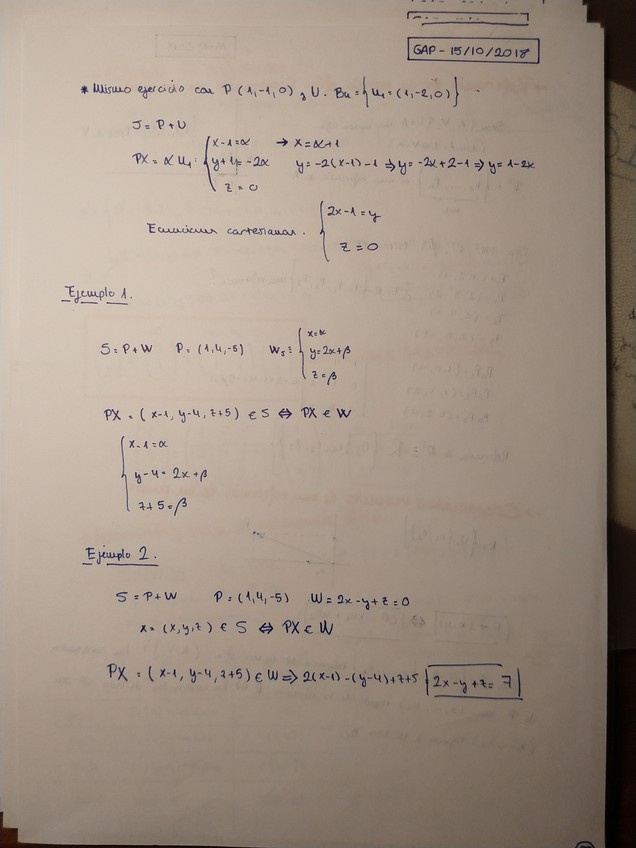 GAP - 15/10/2018
* Mismo ejercicio con P (1,-1,0) y U. Bu = { u₁ = (1,-2,0) }
J = P + U
PX = α u₁ : { x-1 = α → x = α+1
y+1 = -2α y = -2(x-1) -1 ⇒ y = -2x+2-1 ⇒ y = 1-2x
z = 0
Ecuaciones cartesianas. { 2x-1 = y
z = 0
Ejemplo 1.
S = P + W P = (1,4,-5) W₅ ≡ { x = α
y = 2α + β
z = β
PX = (x-1, y-4, z+5) ∈ S ⇔ PX ∈ W
{ x-1 = α
y-4 = 2α + β
z+5 = β
Ejemplo 2.
S = P + W P = (1,4,-5) W = 2x - y + z = 0
x = (x,y,z) ∈ S ⇔ PX ∈ W
PX = (x-1, y-4, z+5) ∈ W ⇒ 2(x-1) - (y-4) + z+5 2x - y + z = 7